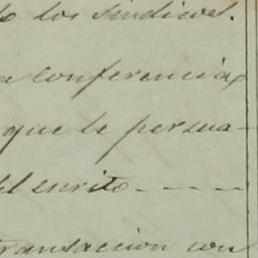 los sindicos.
a conferencia
que le persua-
el escrito - - - -
transaccion con